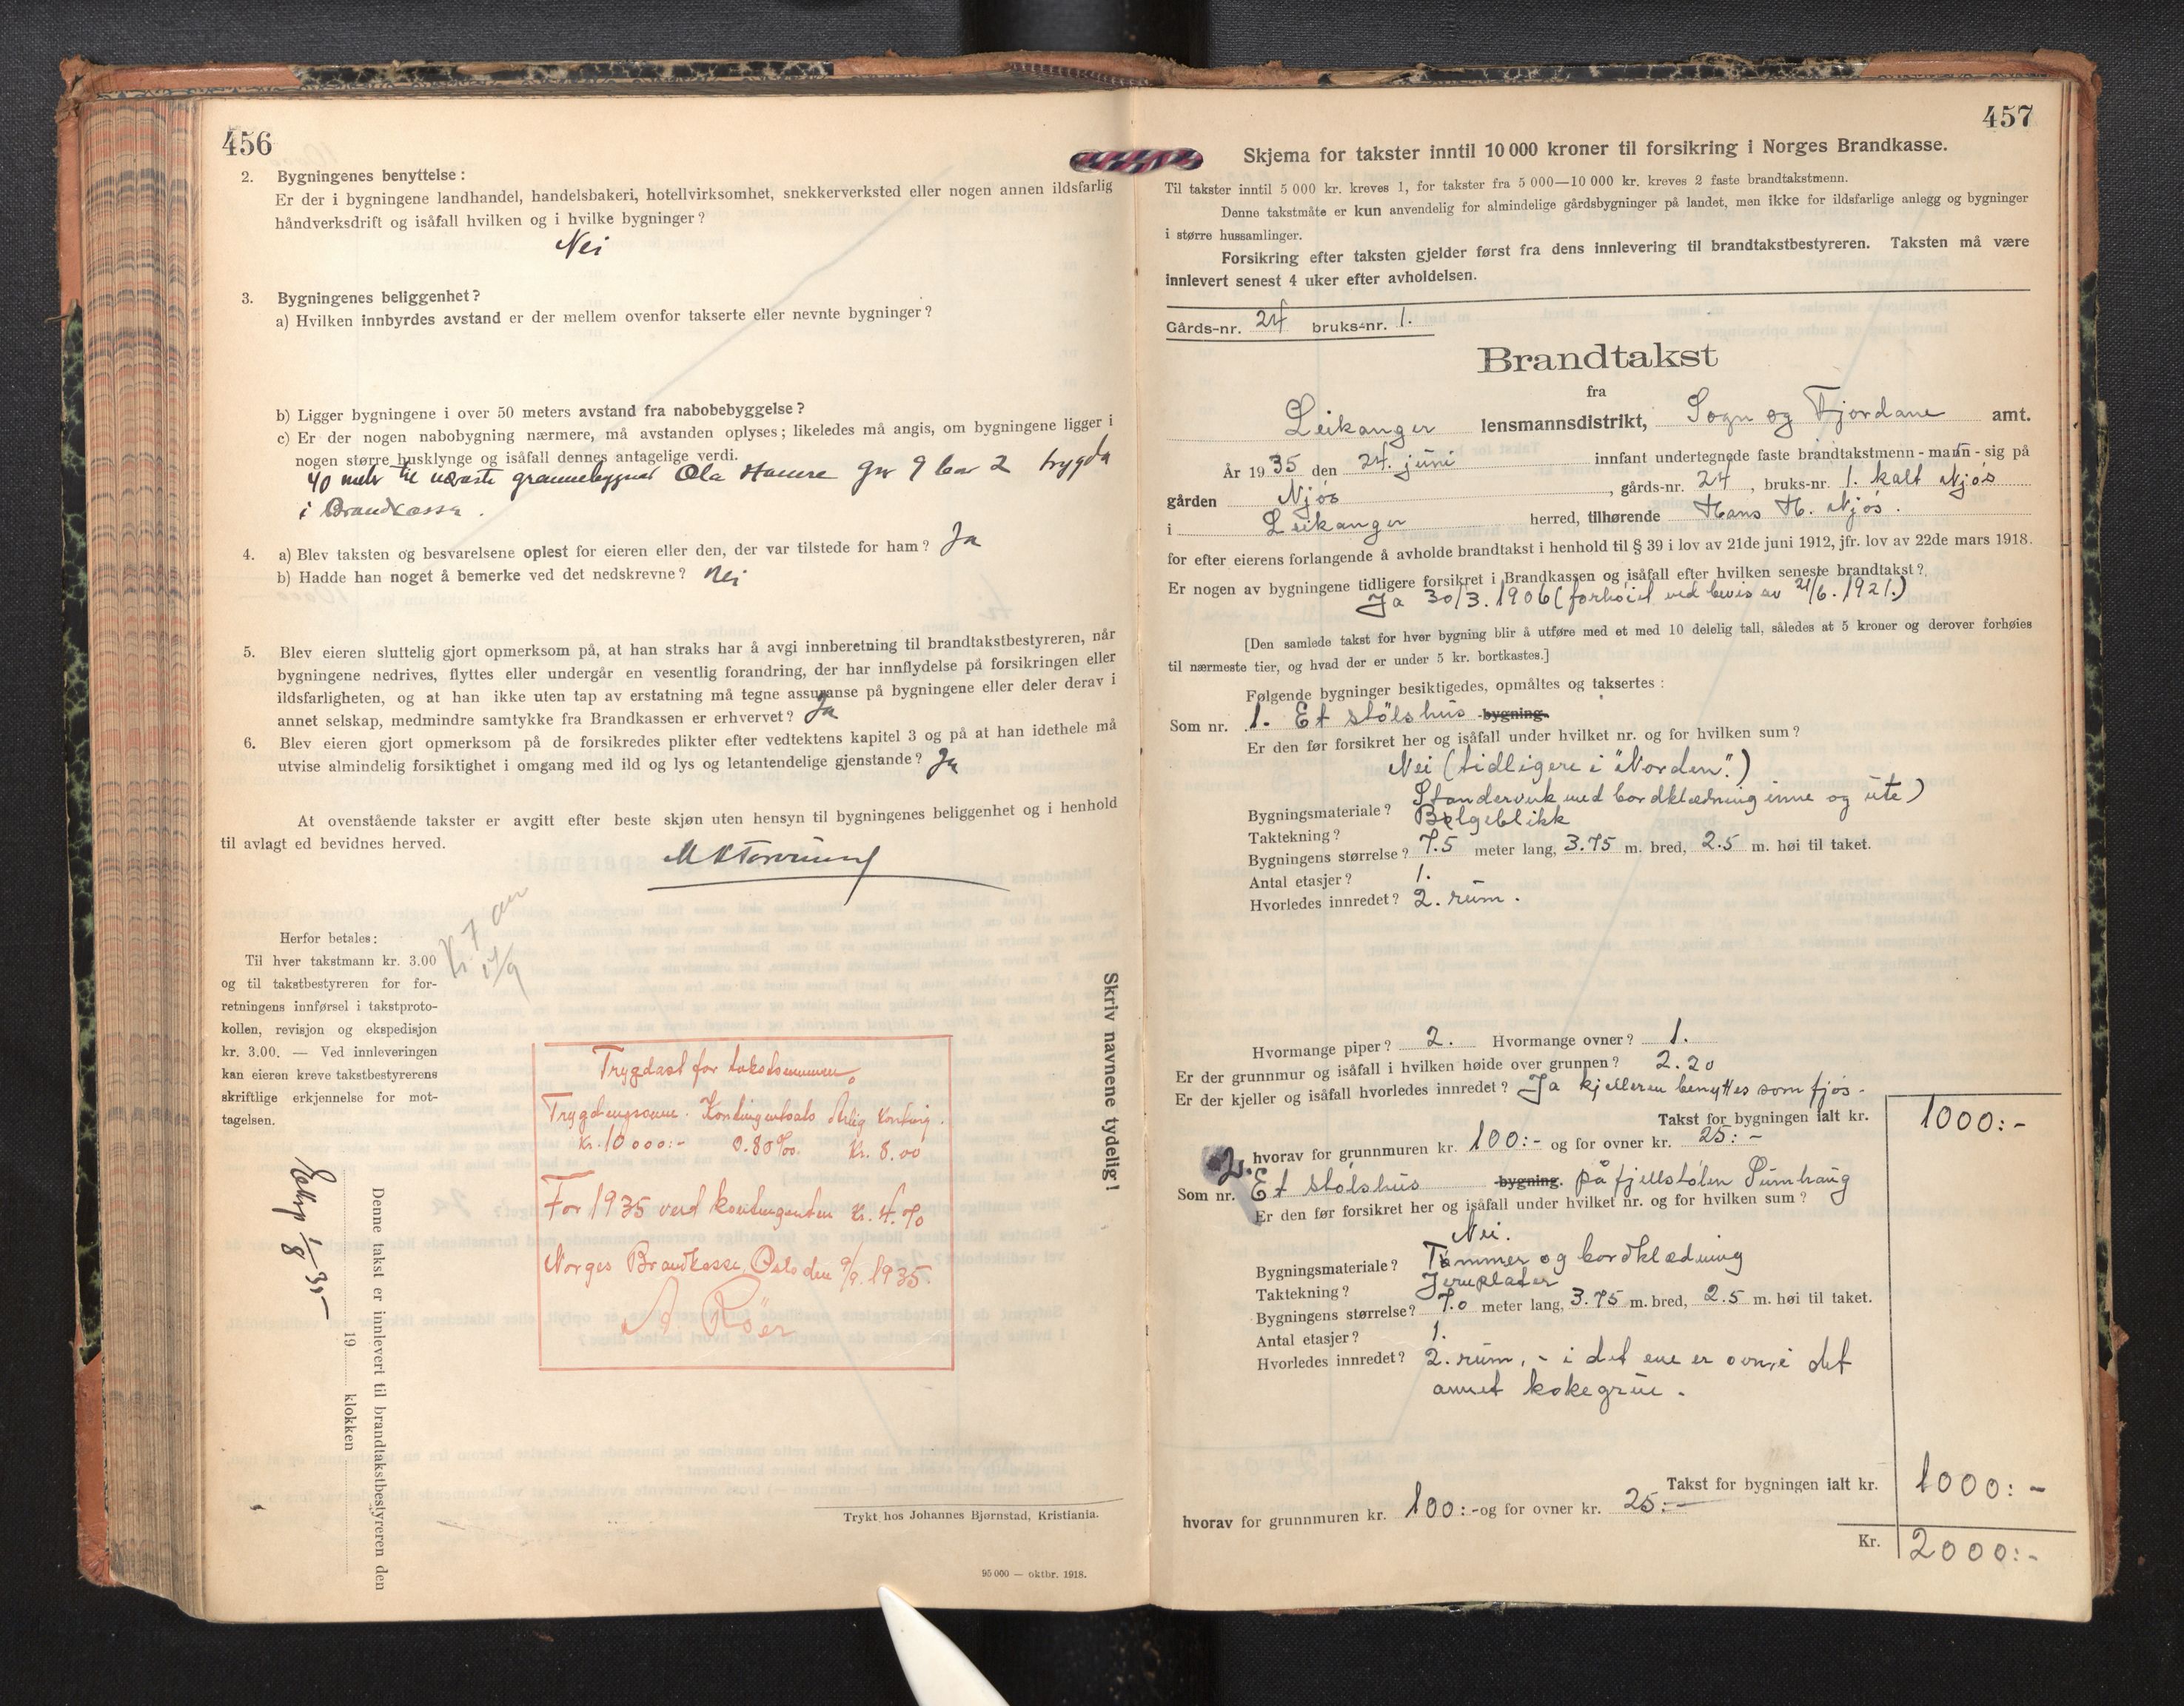 456
2. Bygningenes benyttelse:
Er der i bygningene landhandel, handelsbakeri, hotellvirksomhet, snekkerverksted eller nogen annen ildsfarlig
håndverksdrift og isåfall hvilken og i hvilke bygninger?
Nei
3. Bygningenes beliggenhet?
a) Hvilken innbyrdes avstand er der mellem ovenfor takserte eller nevnte bygninger?
b) Ligger bygningene i over 50 meters avstand fra nabobebyggelse?
c) Er der nogen nabobygning nærmere, må avstanden oplyses; likeledes må angis, om bygningene ligger i
nogen større husklynge og isåfall dennes antagelige verdi.
40 meter til næreste grannebygnad Ola Hamre gnr 9 bnr 2 trygda
i Brandkassa.
4. a) Blev taksten og besvarelsene oplest for eieren eller den, der var tilstede for ham? Ja
b) Hadde han noget å bemerke ved det nedskrevne? Nei
5. Blev eieren sluttelig gjort opmerksom på, at han straks har å avgi innberetning til brandtakstbestyreren, når
bygningene nedrives, flyttes eller undergår en vesentlig forandring, der har innflydelse på forsikringen eller
ildsfarligheten, og at han ikke uten tap av erstatning må tegne assuranse på bygningene eller deler derav i
annet selskap, medmindre samtykke fra Brandkassen er erhvervet? Ja
6. Blev eieren gjort opmerksom på de forsikredes plikter efter vedtektens kapitel 3 og på at han idethele må
utvise almindelig forsiktighet i omgang med ild og lys og letantendelige gjenstande? Ja
At ovenstående takster er avgitt efter beste skjøn uten hensyn til bygningenes beliggenhet og i henhold
til avlagt ed bevidnes herved.
Herfor betales:
Til hver takstmann kr. 3.00
og til takstbestyreren for for-
retningens innførsel i takstproto-
kollen, revisjon og ekspedisjon
kr. 3.00. — Ved innleveringen
kan eieren kreve takstbestyrerens
skriftlige erkjennelse for mot-
tagelsen.
Skriv navnene tydelig!
Trygdast for takstsummen.
Trygdingssum. Kontingentsats Årlig konting.
Kr. 10 000:- 0.80‰ Kr. 8.00
For 1935 verd kontingenten kr. 4.70
Norges Brandkasse, Oslo den 9/9. 1935
A. Röer
Denne takst er innlevert til brandtakstbestyreren den
19 klokken
1/8 35
Trykt hos Johannes Bjørnstad, Kristiania.
95 000 — oktbr. 1918.
457
Skjema for takster inntil 10 000 kroner til forsikring i Norges Brandkasse.
Til takster inntil 5 000 kr. kreves 1, for takster fra 5 000—10 000 kr. kreves 2 faste brandtakstmenn.
Denne takstmåte er kun anvendelig for almindelige gårdsbygninger på landet, men ikke for ildsfarlige anlegg og bygninger
i større hussamlinger.
Forsikring efter taksten gjelder først fra dens innlevering til brandtakstbestyreren. Taksten må være
innlevert senest 4 uker efter avholdelsen.
Gårds-nr. 24 bruks-nr. 1.
Brandtakst
fra
Leikanger lensmannsdistrikt, Sogn og Fjordane amt.
År 1935 den 24. juni innfant undertegnede faste brandtakstmenn - mann - sig på
gården Njøs, gårds-nr. 24, bruks-nr. 1. kalt Njøs
i Leikanger herred, tilhørende Hans H. Njøs.
for efter eierens forlangende å avholde brandtakst i henhold til § 39 i lov av 21de juni 1912, jfr. lov av 22de mars 1918.
Er nogen av bygningene tidligere forsikret i Brandkassen og isåfall efter hvilken seneste brandtakst?
Ja 30/3. 1906 (forhøiet ved bevis av 21/6. 1921.)
[Den samlede takst for hver bygning blir å utføre med et med 10 delelig tall, således at 5 kroner og derover forhøies
til nærmeste tier, og hvad der er under 5 kr. bortkastes.]
Følgende bygninger besiktigedes, opmåltes og taksertes:
Som nr. 1. Et stølshus bygning.
Er den før forsikret her og isåfall under hvilket nr. og for hvilken sum?
Nei (tidligere i "Norden".)
Bygningsmateriale? Standerverk med bordklædning inne og ute)
Taktekning? Bølgeblikk
Bygningens størrelse? 7.5 meter lang, 3.75 m. bred, 2.5 m. høi til taket.
Antal etasjer? 1.
Hvorledes innredet? 2. rum.
Hvormange piper? 2. Hvormange ovner? 1.
Er der grunnmur og isåfall i hvilken høide over grunnen? 2.20
Er der kjeller og isåfall hvorledes innredet? Ja kjelleren benyttes som fjøs.
Takst for bygningen ialt kr. 1000:-
hvorav for grunnmuren kr. 100:- og for ovner kr. 25:-
Som nr. 2. Et stølshus bygning. på fjellstølen
Er den før forsikret her og isåfall under hvilket nr. og for hvilken sum?
Nei.
Bygningsmateriale? Tømmer og bordklædning
Taktekning? Jernplater
Bygningens størrelse? 7.0 meter lang, 3.75 m. bred, 2.5 m. høi til taket.
Antal etasjer? 1.
Hvorledes innredet? 2. rum, - i det ene er ovn, i det
annet kokegrue.
Takst for bygningen ialt kr. 1000:-
hvorav for grunnmuren kr. 100:- og for ovner kr. 25:-
Kr. 2000:-